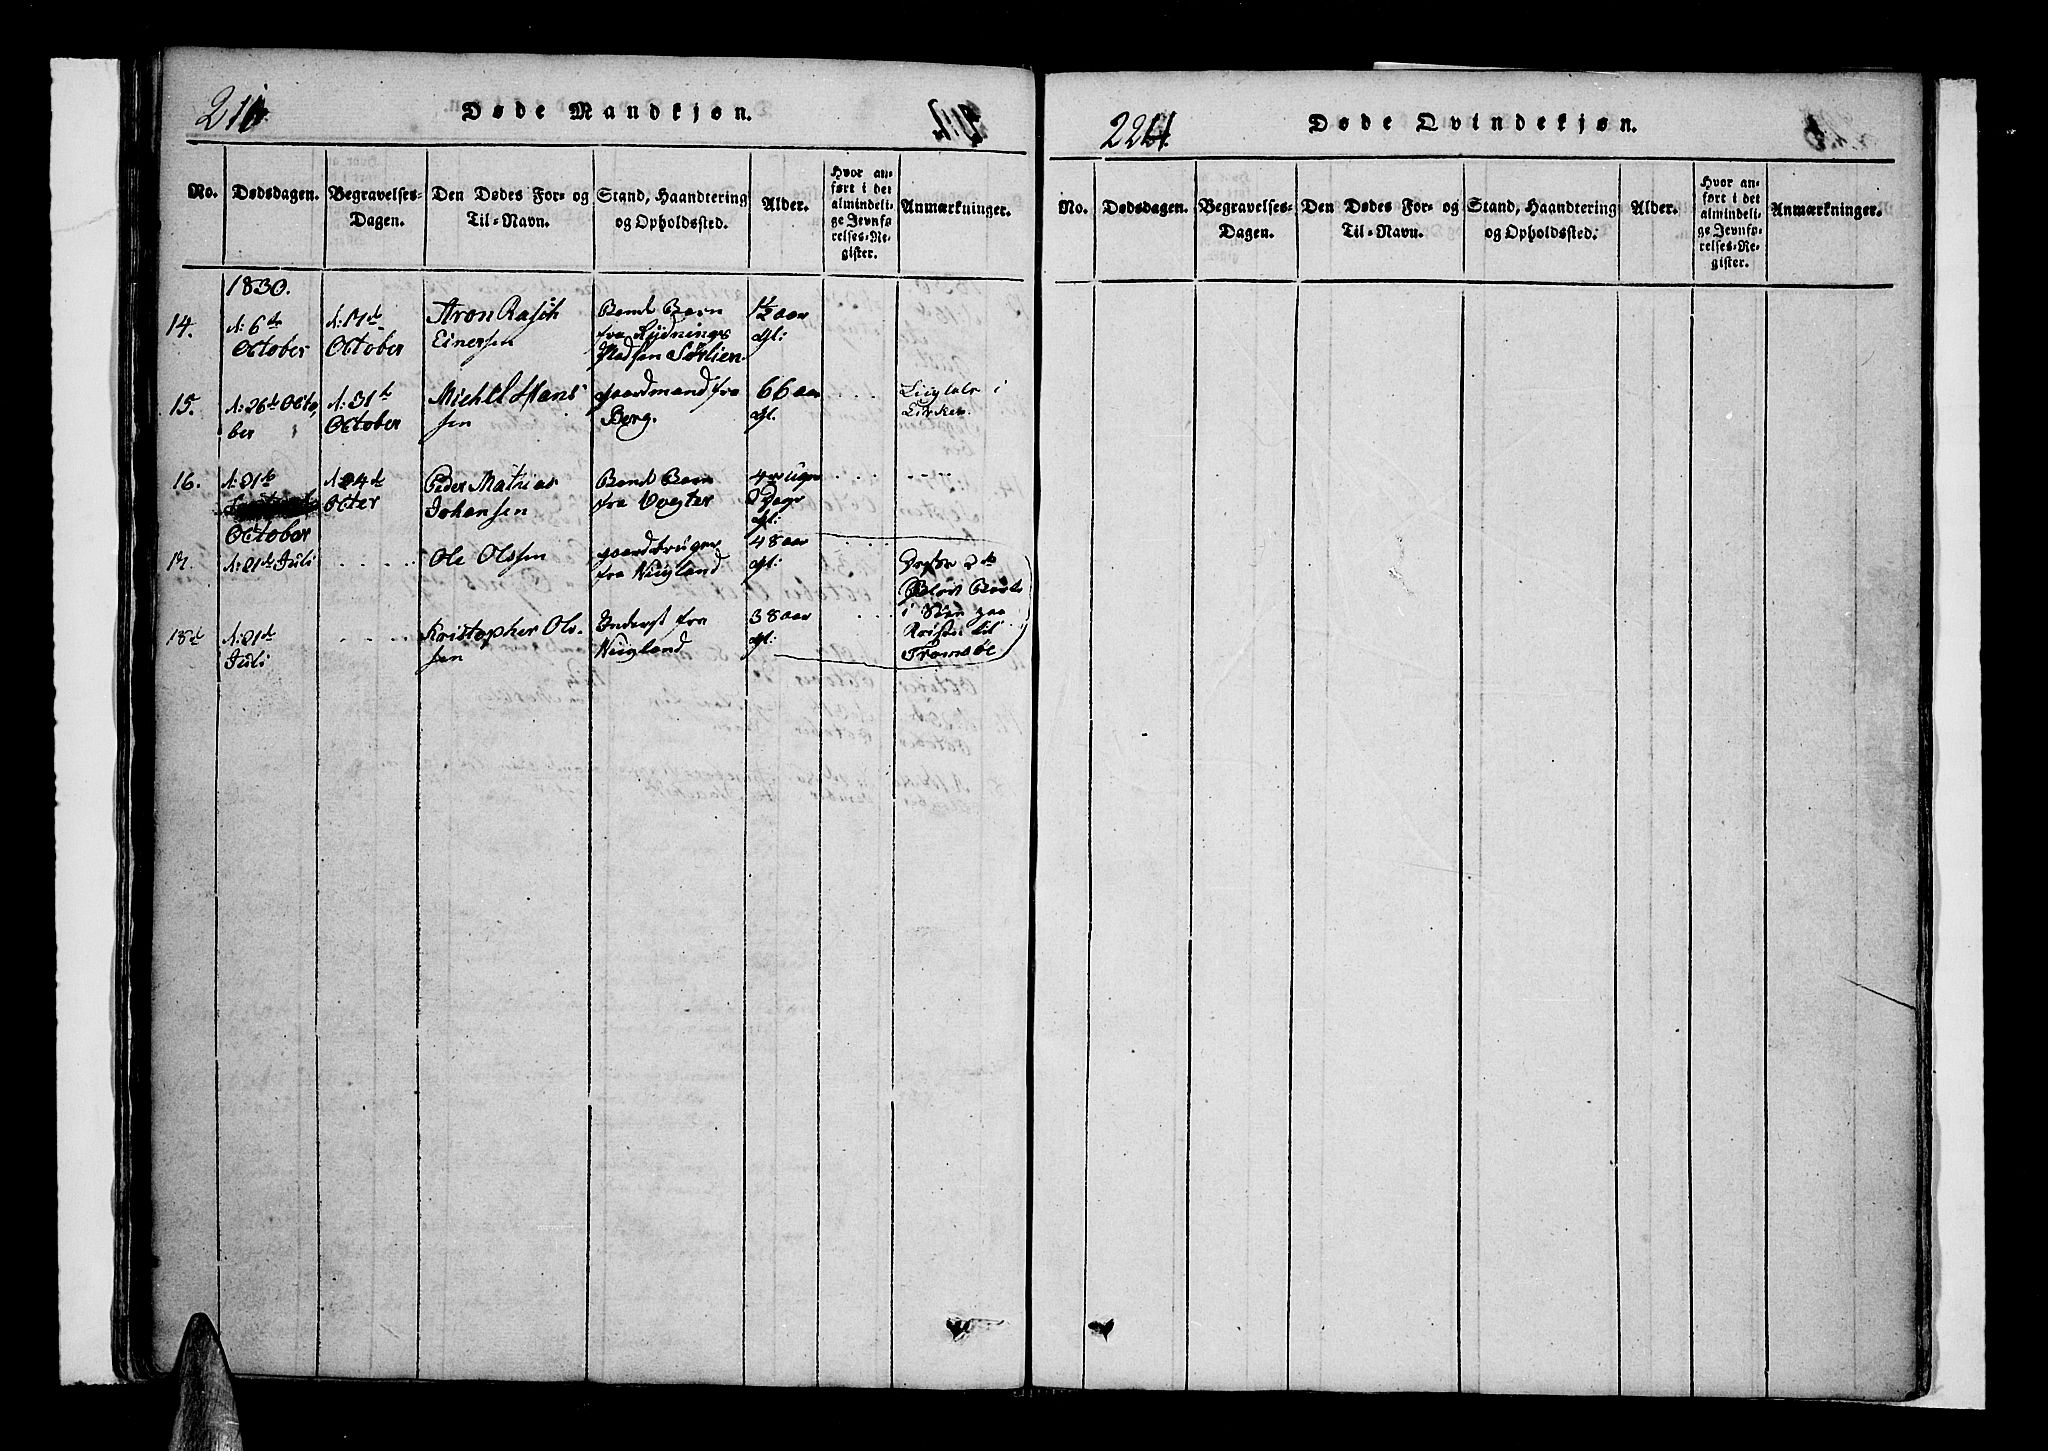 Døde Mandkjøn.
No.
Dødsdagen.
Begravelses-
Dagen.
Den Dødes For- og
Til-Navn.
Stand, Haandtering
og Opholdssted.
Alder.
Hvor an-
ført i det
almindeli-
ge Jevnfø-
relses-Re-
gister.
Anmærkninger.
1830.
14.
d: 6te
October
October
Aron Rasch
Einersen
Bond Barn
fra
Sørlien.
1½ aar
gl:
15.
d: 26de Octo
ber
d: 31te
October
Michel Hans
sen
gaardmand fra
Berg.
66 aar
gl.
i
16.
d: 21de
October
d: 24de
Octer
Peder Mathias
Johansen
Bond Barn
fra Vogter
4re uger
2 Dage
gl:
17.
d: 21de Juli
Ole Olssen
fra
48 aar
gl:
Disse 2de
i
til
Tromsöe
18de
d: 21de
Juli
Kristopher Ols-
sen
Inderst fra
38 aar
gl:
224.
Døde Qvindekjøn.
No.
Dødsdagen.
Begravelses-
Dagen.
Den Dødes For- og
Til-Navn.
Stand, Haandtering
og Opholdssted.
Alder.
Hvor an-
ført i det
almindeli-
ge Jevnfø-
relses-Re-
gister.
Anmærkninger.